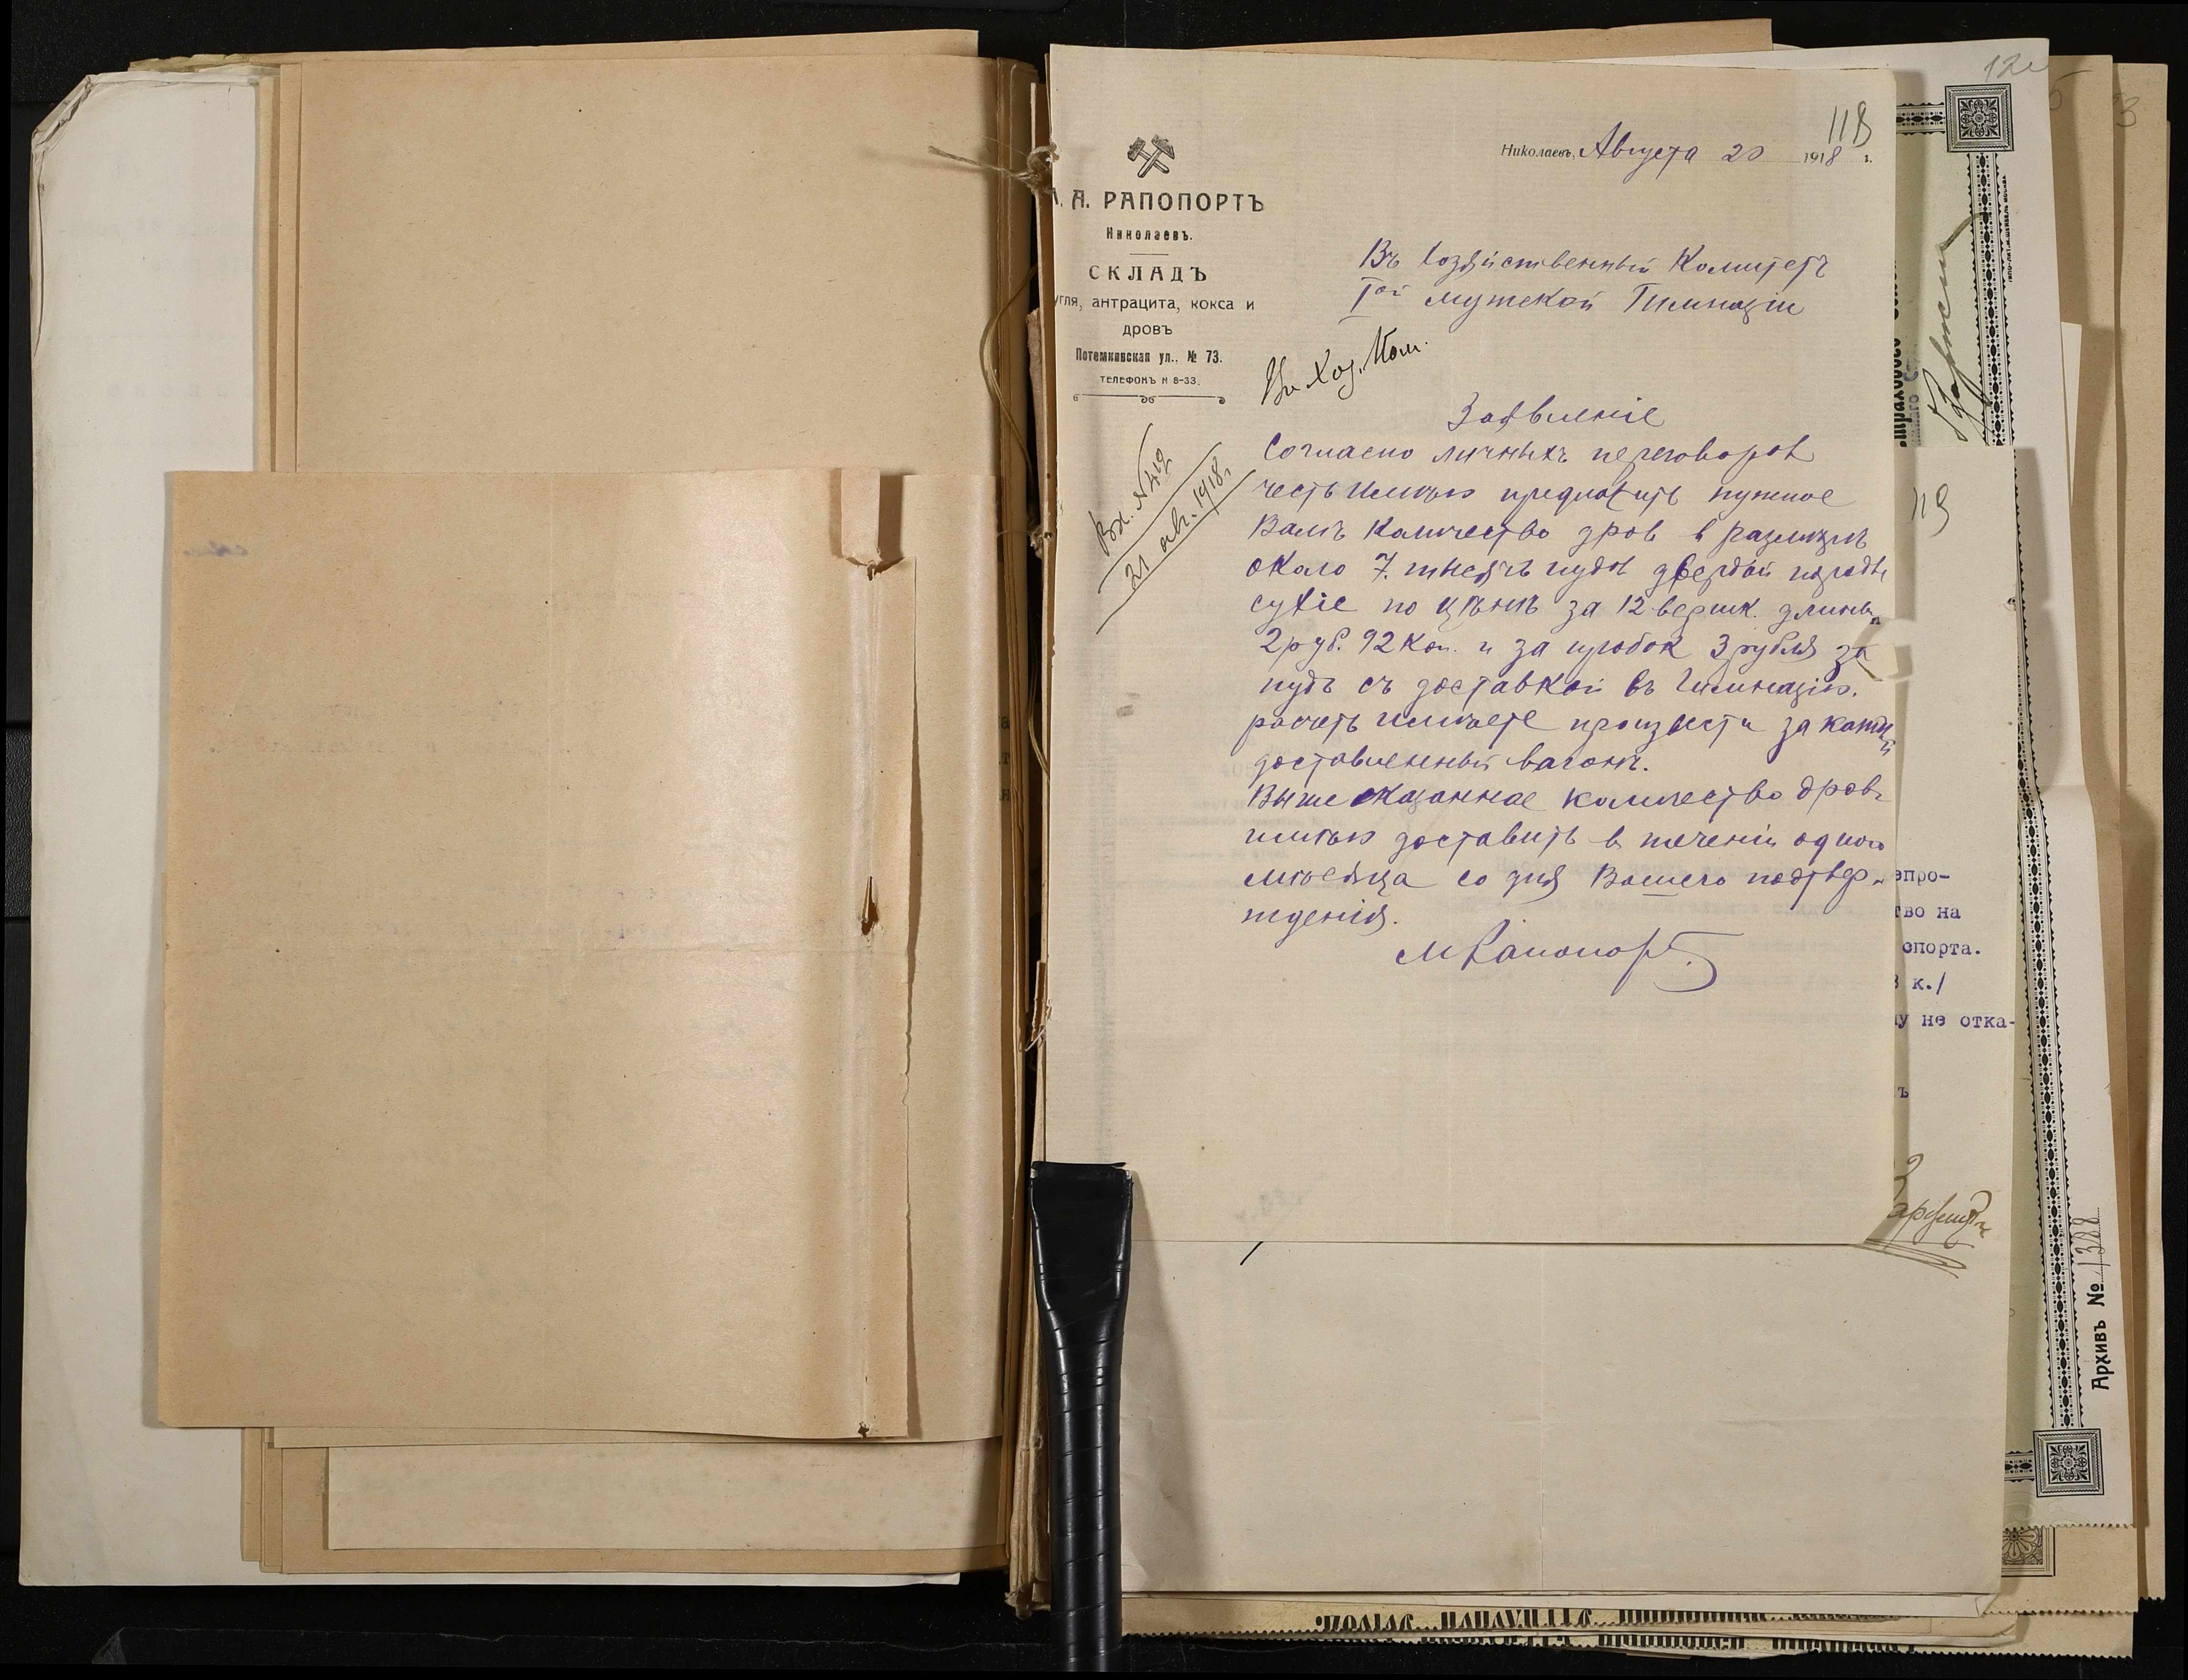 118
Николаевъ, Августа 20 1918 г.
А. РАПОПОРТЪ
Николаевъ.
СКЛАДЪ
угля, антрацита, кокса и
дровъ
Потемкинская ул.. № 73.
ТЕЛЕФОНЪ № 8-33.
Въ Хозяйственный Комитетъ
Iой мужской Гимназіи
Въ Хоз. Ком.
Вх. № 419
21 авг. 1918 г.
Заявленіе
Согласно личныхъ переговоров
честь имѣю предложить нужное
Вамъ количество дров в размѣрѣ
около 7. тысячъ пудов двердой породы
сухіе по цѣнѣ за 12 вершк. длины
2 руб. 92 коп. и за пробок 3 рубля за
пудъ съ доставкой въ Гимназію.
расчетъ имѣете произвести за каждый
доставленный вагонъ.
Выше сказанное количество дровъ
имѣю доставить в теченіи одного
мѣсяца со дня Вашего подтвер-
жденія.
М Рапопорт.
12
119
эпро-
тво на
спорта.
к./
у не отка-
ъ
Архивъ № 1388